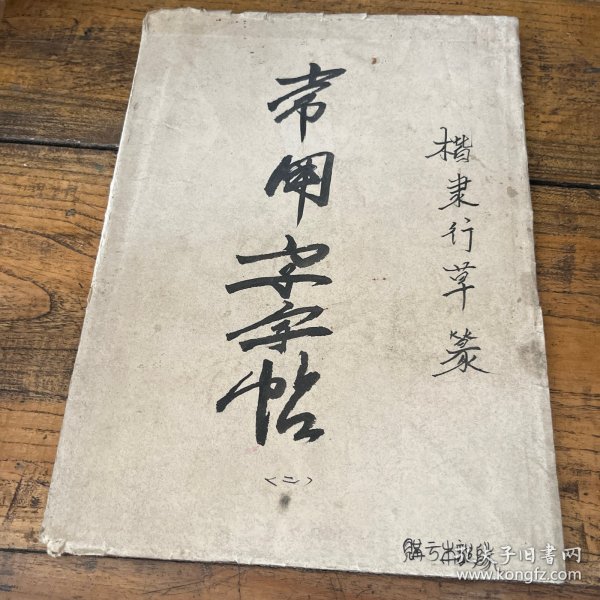 楷隶行草篆
常用字字帖
<二>
孔夫子旧书网
www.kongfz.com